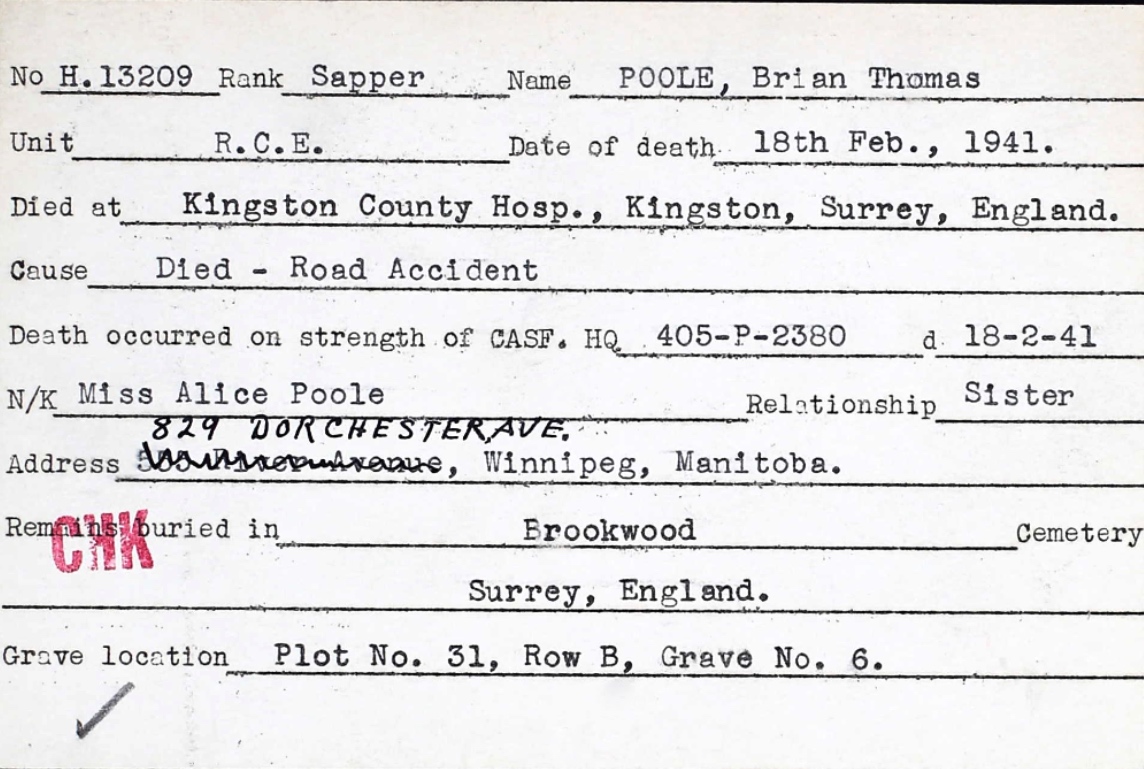 No H.13209 Rank Sapper Name POOLE, Brian Thomas
Unit R.C.E. Date of death 18th Feb., 1941.
Died at Kingston County Hosp., Kingston, Surrey, England.
Cause Died - Road Accident
Death occurred on strength of CASF. HQ 405-P-2380 d 18-2-41
N/K Miss Alice Poole Relationship Sister
829 DORCHESTER, AVE.
Address Avenue, Winnipeg, Manitoba.
Remains buried in Brookwood Cemetery
CHK
Surrey, England.
Grave location Plot No. 31, Row B, Grave No. 6.